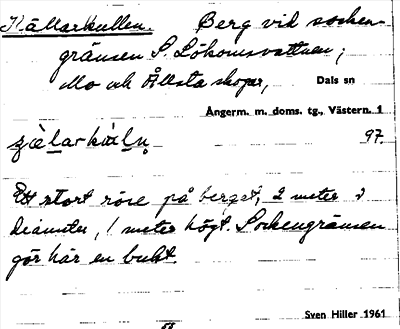 Källarkullen. Berg vid socken-
gränsen S. Lökomsvattnen;
Mo och Ållsta skogar, Dals sn
Ångerm. m. doms. tg., Västern. 1
97.
Ett stort röse på berget, 2 meter i
diameter, 1 meter högt. Sockengränsen
gör här en bukt.
Sven Hiller 1961